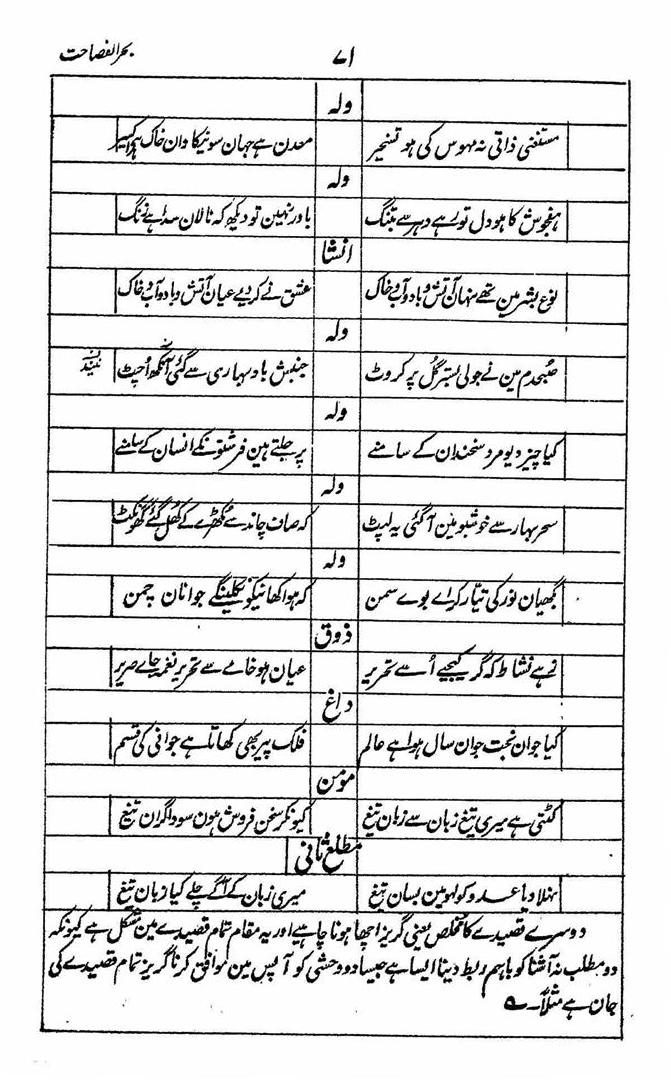 بحر الفصاحت ۷۱
ولہ
مستغنی ذاتی نہ مہوس کی ہو تسخیر معدن ہے جہان سونیکا وان خاک ہے اکسیر
ولہ
ہفجوش کا ہو دل تو رہے دہر سے تنگ باور نہین تو دیکھ کہ نالان سدا ہے زنگ
انشا
نوع بشر مین تھے نہان آتش و باد و آب و خاک عشق نے کر دیے عیان آتش و باد و آب و خاک
ولہ
صبحدم مین نے جو لی بستر گل پر کروٹ جنبش باد بہاری سے گئی آنکھ اُچٹ نیند
ولہ
کیا چیز دیو مرد سخندان کے سامنے پر جلتے ہین فرشتونکے انسان کے سامنے
ولہ
سحر بہار سے خوشبو مین آ گئی یہ لپٹ کہ صاف چاند سے مُکھڑے کے کھُل گئے گھونگٹ
ولہ
بگھیان نور کی تیار کر اے بوے سمن کہ ہوا کھانیکو نکلینگے جوانان چمن
ذوق
زہے نشاط کہ گر کیجیے اُسے تحریر عیان ہو خامے سے تحریر نغمہ جاے صریر
داغ
کیا جوان بخت جوان سال ہوا ہے عالم فلک پیر بھی کھاتا ہے جوانی کی قسم
مؤمن
کٹتی ہے میری تیغ زبان سے زبان تیغ کیونکر سخن فروش ہون سوداگران تیغ
مطلع ثانی
نہلا دیا عدو کو لہو مین بسان تیغ میری زبان کے آگے چلے کیا زبان تیغ
دوسرے قصیدے کا تخلص یعنی گریز اچھا ہونا چاہیے اور یہ مقام تمام قصیدے مین مشکل ہے کیونکہ
دو مطلب نہ آشنا کو باہم ربط دینا ایسا ہے جیسا دو وحشی کو آپس مین موافق کرنا گریز تمام قصیدے کی
جان ہے مثلاً۔